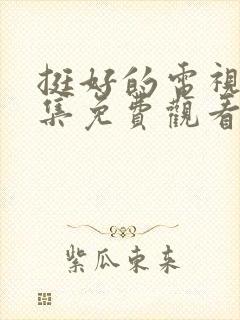 挺好的電視
集免費觀看
紫瓜東来